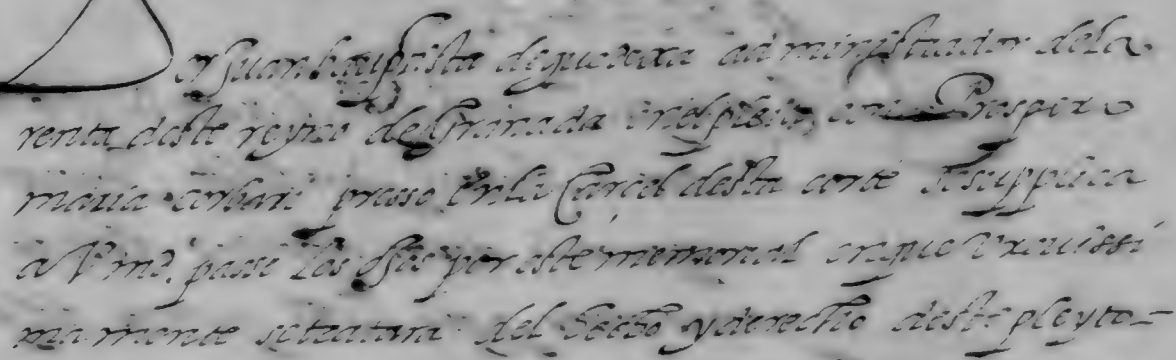 Por Juan baptista de guevara administrador dela
renta deste reyno de Granada enel pleito con Prospero
maria presso En la Carcel desta corte se supplica
a Vmd. passe los ojos por este memorial en que brevissi
mamente se tratara del hecho y derecho deste pleyto